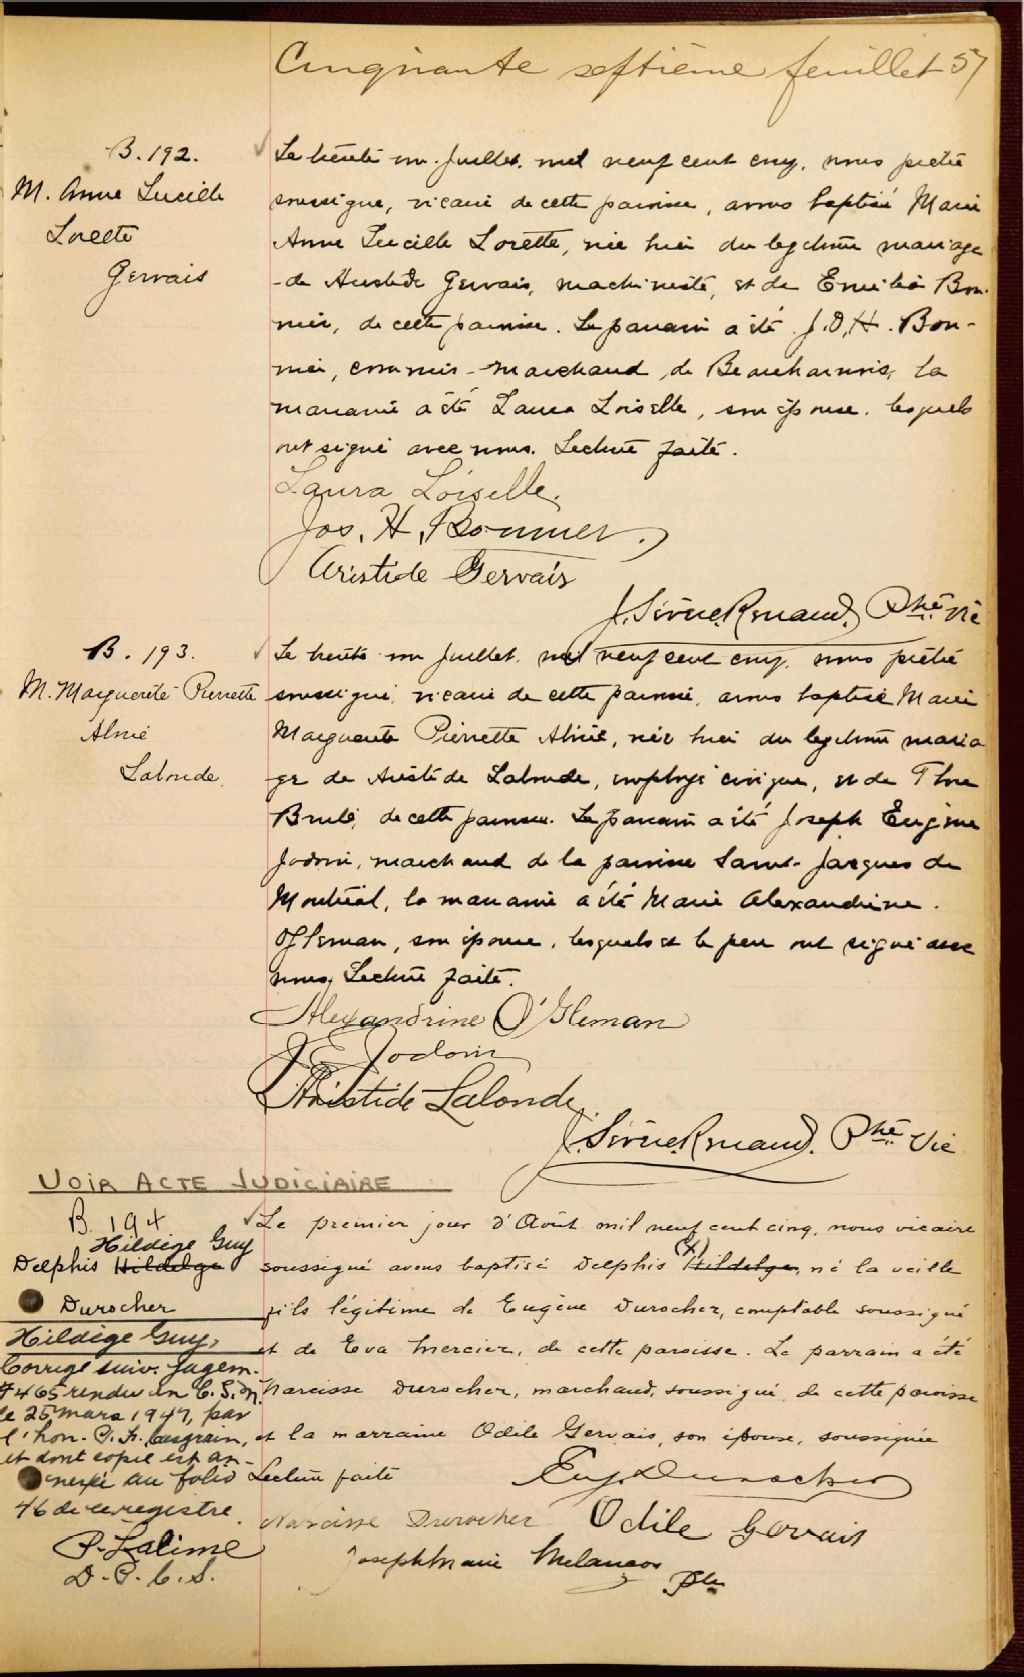 Cinquante septième feuillet 57
B. 192.
M. Anne Lucille
Lorette
Gervais
Le trente un Juillet, mil neuf cent cinq, nous prêtre
soussigné, vicaire de cette paroisse, avons baptisé Marie
Anne Lucille Lorette, née hier du légitime mariage
de Aristide Gervais, machiniste, et de Bon-
nier, de cette paroisse. Le parrain a été J. D. H. Bon-
nier, commis-marchand de Beauharnois, la
marraine a été Laura Loiselle, son épouse, lesquels
ont signé avec nous. Lecture faite.
Laura Loiselle.
Jos. H. Bonnier.
Aristide Gervais
J. Sirène Renaud. Ptre. Vic
B. 193.
M. Marguerite Pierrette
Aliné
Lalonde.
Le trente un Juillet, mil neuf cent cinq, nous prêtre
soussigné, vicaire de cette paroisse, avons baptisé Marie
Marguerite Pierrette née hier du légitime maria
ge de Aristide Lalonde, employé civique, et de
Brulé, de cette paroisse. Le parrain a été Joseph Eugène
Jodoin, marchand de la paroisse Saint-Jacques de
Montréal, la marraine a été Marie Alexandrine
son épouse, lesquels et le père ont signé avec
nous, Lecture faite.
Alexandrine O'Gleman
J E Jodoin
Aristide Lalonde
J. Sirène Renaud. Ptre Vic
VOIR ACTE JUDICIAIRE
B. 194
Hildége Guy
Delphis Hildelge
Durocher
Hildége Guy,
Corrigé suiv. Jugem.
# 465 rendu en C. S. M.
le 25 mars 1947, par
l'hon. P. Casgrain,
et dont copie est an-
nexée au folio
46 de ce registre.
P. Lalime
D. P. C. S.
Le premier jour d'Août mil neuf cent cinq, nous vicaire
soussigné avons baptisé Delphis (X) Hildelge, né la veille
fils légitime de Eugène Durocher, comptable soussigné
et de Eva Mercier, de cette paroisse. Le parrain a été
Narcisse Durocher, marchand, soussigné, de cette paroisse
et la marraine Odile Gervais, son épouse, soussignée
Lecture faite
Eug. Durocher
Narcisse Durocher Odile Gervais
Joseph Marie Melançon
Ptre